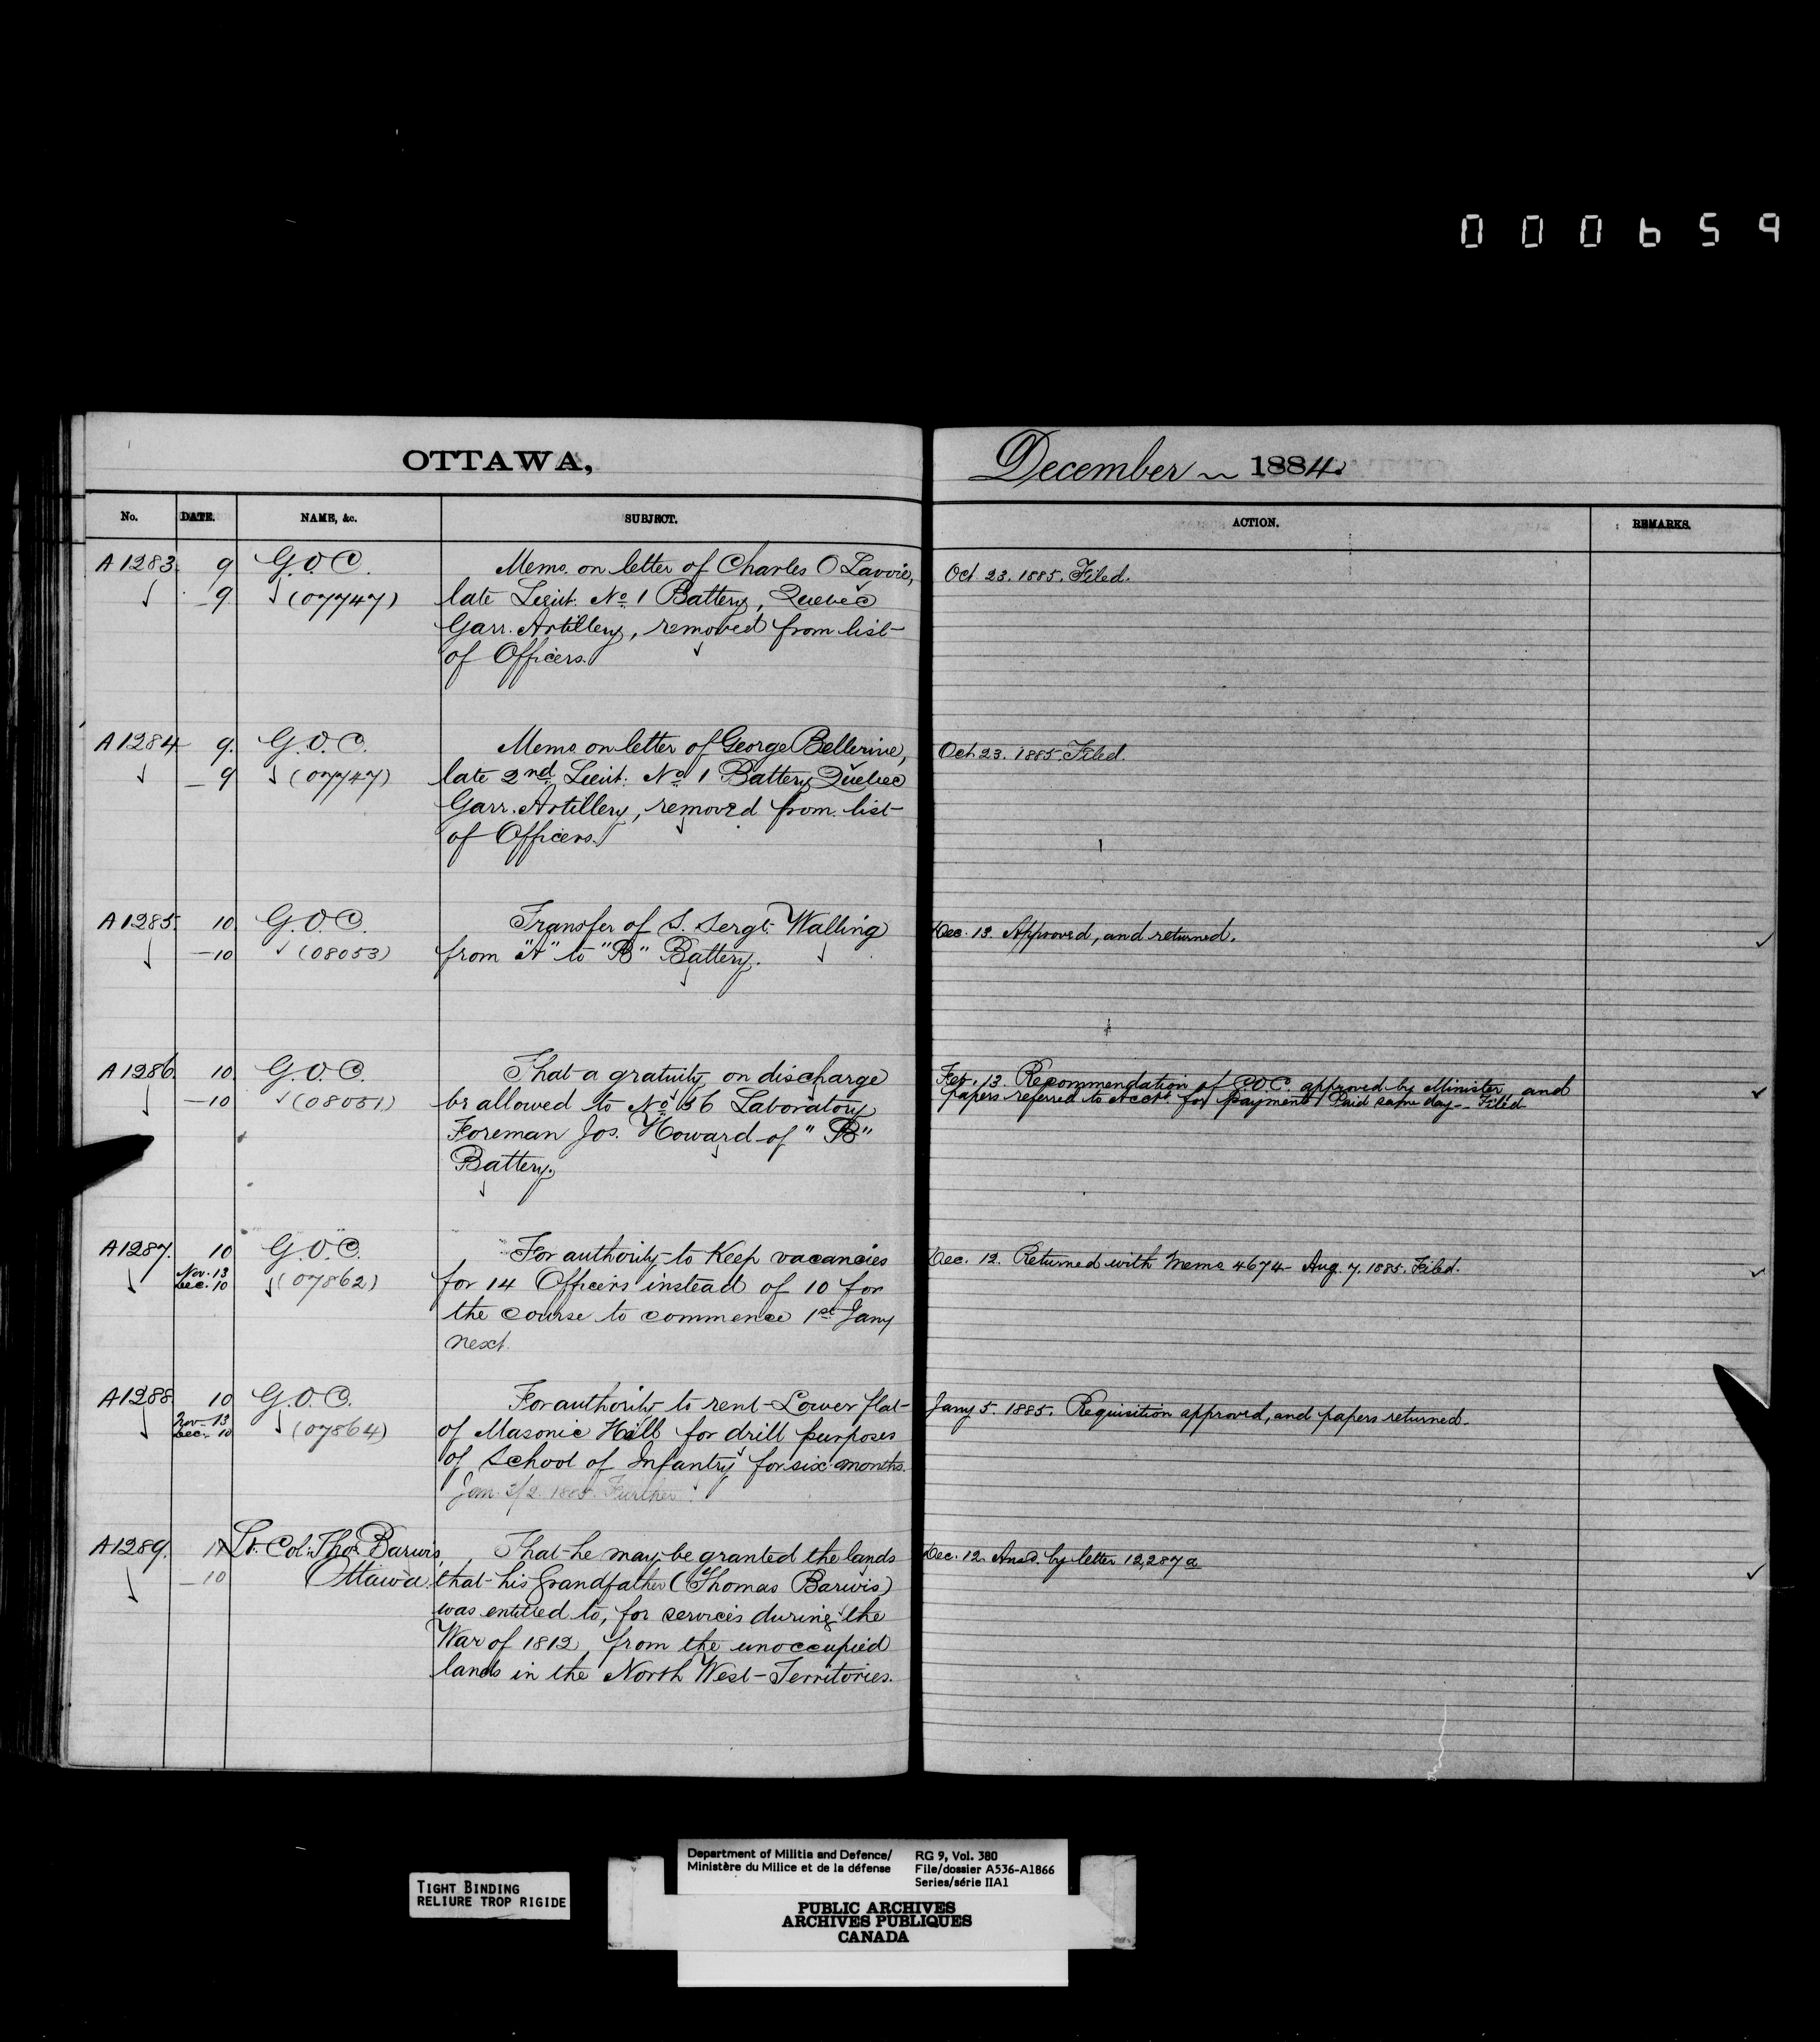 000659
OTTAWA,
December 1884.
No. DATE. NAME, &c. SUBJECT. ACTION. REMARKS.
A1283. 9 G.O.C. Memo. on letter of Charles O Lavoie, Oct 23. 1885. Filed.
9 (07747) late Lieut. No. 1 Battery, Quebec
Garr. Artillery, removed from list
of Officers.
A1284 9. G.O.C. Memo on letter of George Bellerive, Oct 23. 1885. Filed.
9 (07747) late 2nd Lieut. No. 1 Battery Quebec
Garr. Artillery, removed from list
of Officers.
A1285. 10 G.O.C. Transfer of S. Sergt. Walling Dec. 13. Approved, and returned.
10 (08053) from "A" to "B" Battery.
A1286. 10. G.O.C. That a gratuity on discharge Feb. 13. Recommendation of G.O.C. approved by Minister, and
10 (08051) be allowed to No. 136 Laboratory papers referred to Acct. for payment. Paid same day - Filed
Foreman Jos. Howard of "B"
Battery.
A1287. 10 G.O.C. For authority to Keep vacancies Dec. 12. Returned with memo 4674 - Aug. 7. 1885. Filed.
Nov. 13
Dec. 10 (07862) for 14 Officers instead of 10 for
the course to commence 1st Jany
next.
A1288. 10 G.O.C. For authority to rent Lower flat Jany 5. 1885. Requisition approved, and papers returned.
Nov - 13
Dec. 10 (07864) of Masonic Hall for drill purposes
of School of Infantry for six months.
Jan. 1885. Further
A1289. Lt. Col. Thos. Barwis, That he may be granted the lands Dec. 12. Ansd. by letter 12,287a
10 Ottawa. that his Grandfather (Thomas Barwis)
was entitled to, for services during the
War of 1812, from the unoccupied
lands in the North West Territories.
TIGHT BINDING
RELIURE TROP RIGIDE
Department of Militia and Defence/ RG 9, Vol. 380
Ministère du Milice et de la défense File/dossier A536-A1866
Series/série IIA1
PUBLIC ARCHIVES
ARCHIVES PUBLIQUES
CANADA